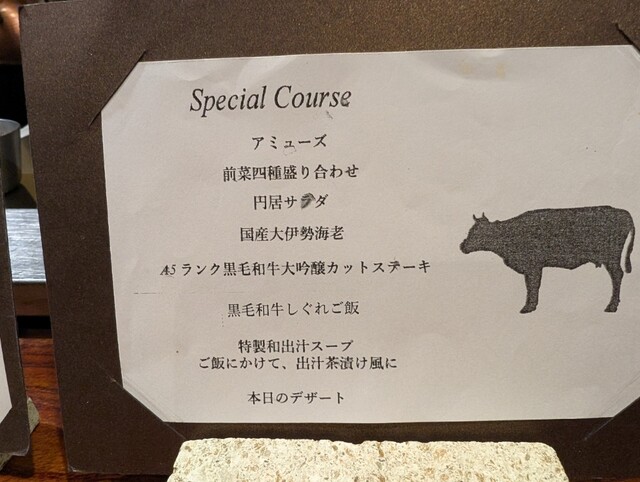 Special Course
アミューズ
前菜四種盛り合わせ
円居サラダ
国産大伊勢海老
A5ランク黒毛和牛大吟醸カットステーキ
黒毛和牛しぐれご飯
特製和出汁スープ
ご飯にかけて、出汁茶漬け風に
本日のデザート